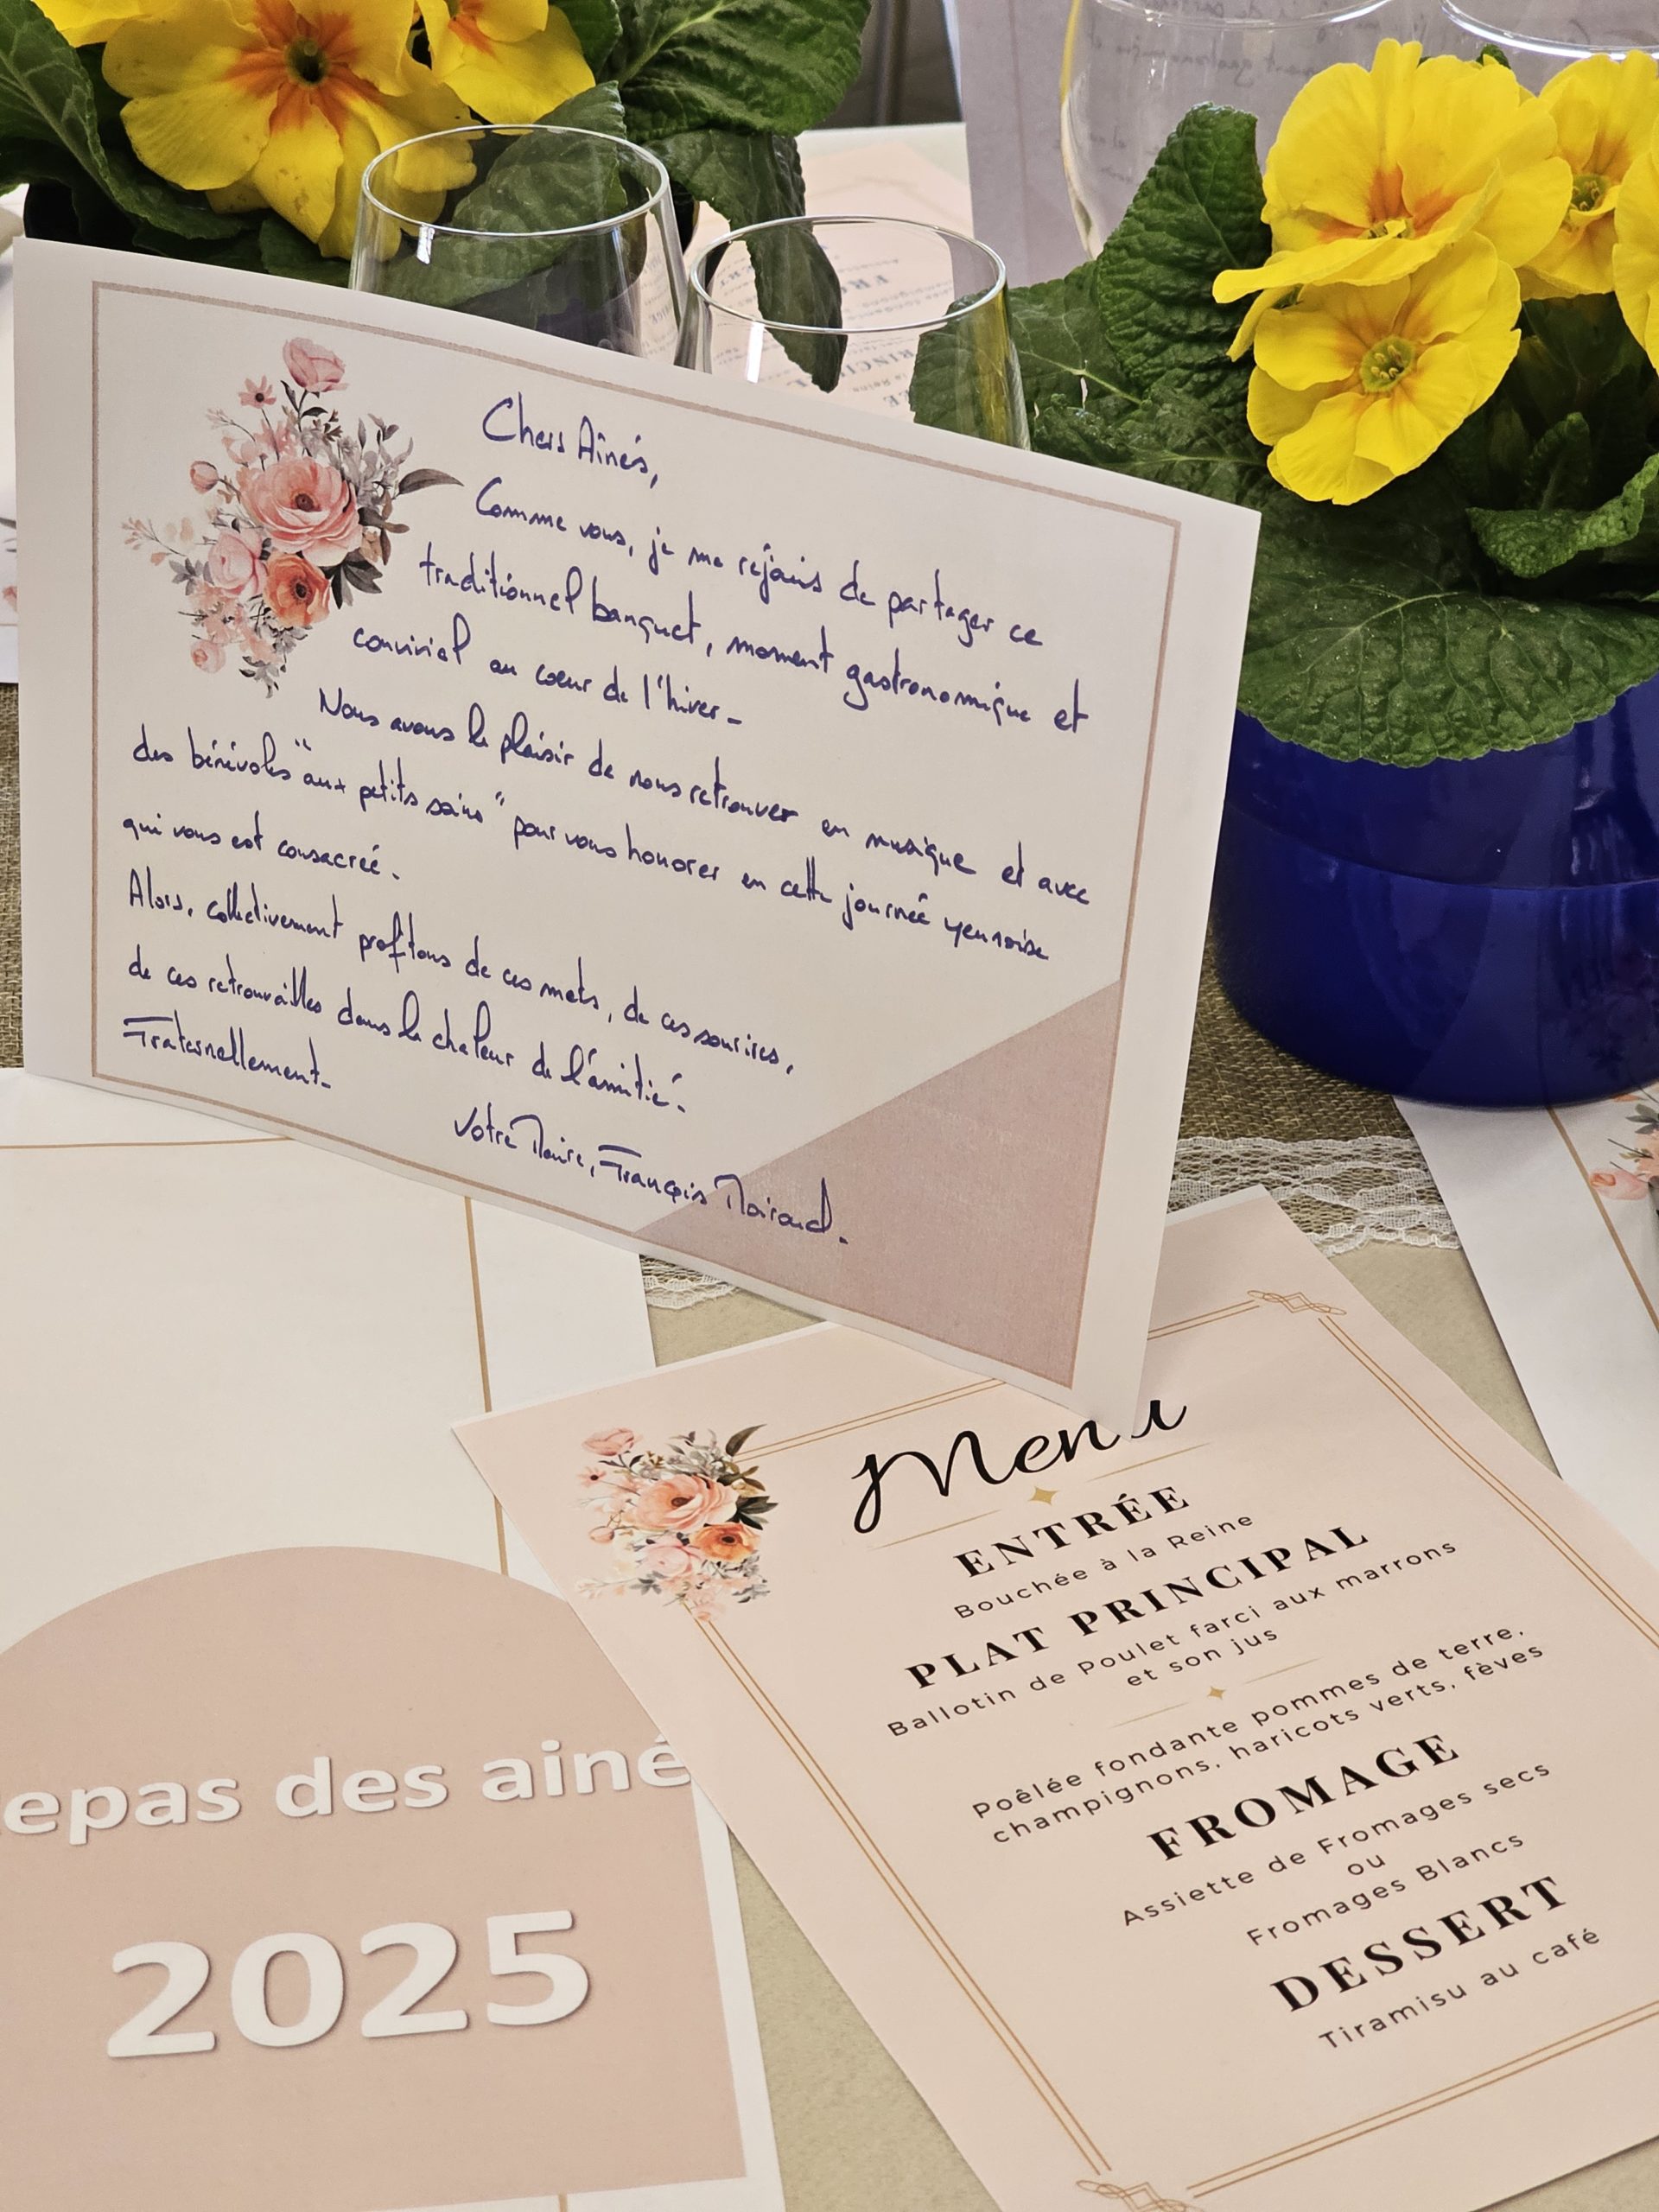 Chers Aînés,
Comme vous, je me réjouis de partager ce
traditionnel banquet, moment gastronomique et
convivial au cœur de l'hiver-
Nous avons le plaisir de nous retrouver en musique et avec
des bénévoles "aux petits soins" pour vous honorer en cette journée yennoise
qui vous est consacrée.
Alors, collectivement profitons de ces mets, de ces sourires,
de ces retrouvailles dans la chaleur de l'amitié.
Fraternellement-
Votre Maire, François Moiroud.
Menu
ENTRÉE
Bouchée à la Reine
PLAT PRINCIPAL
Ballotin de Poulet farci aux marrons
et son jus
Poêlée fondante pommes de terre,
champignons, haricots verts, fèves
FROMAGE
Assiette de Fromages secs
ou
Fromages Blancs
DESSERT
Tiramisu au café
epas des ainé
2025